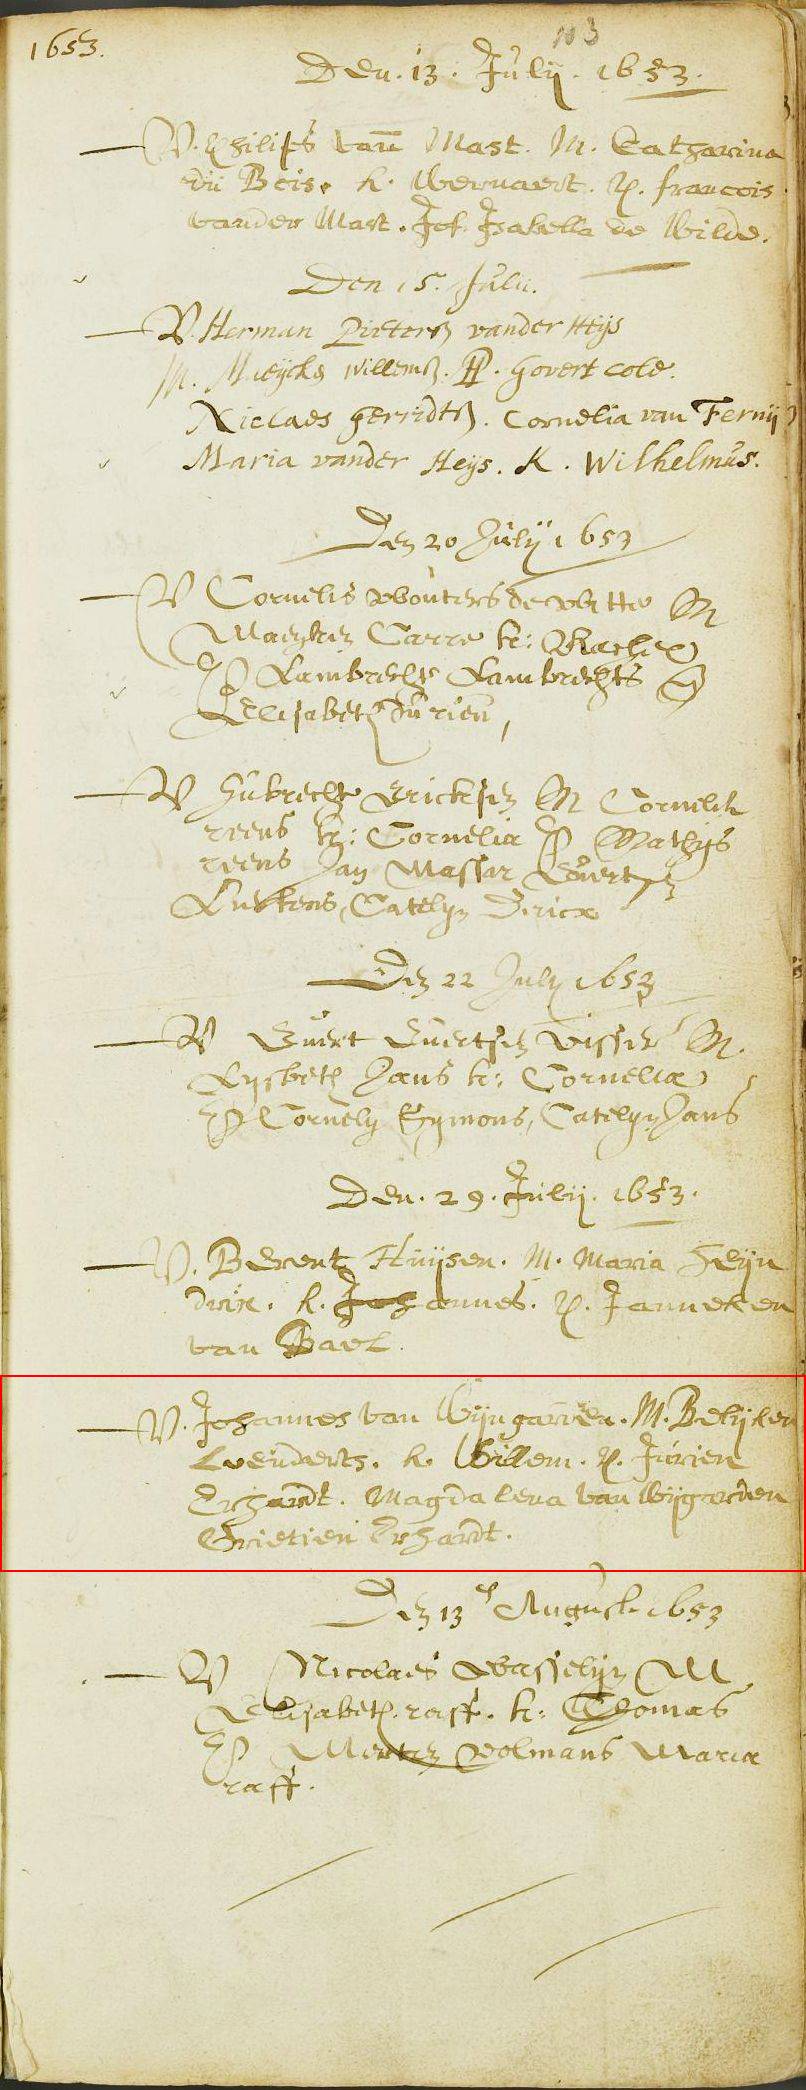 1653.
103
Den. 13. Julij. 1653.
V. Philips vann Mast. M. Catharina
dü Bois. k. Wernaert. P. francois
vander Mast. Jof. Isabella de Wilde.
Den 15. Julii.
V. Herman Pieterß vander Heijs
M. Mieijcks Willemß. P. Govert Cole.
Niclaes gerridtß. Cornelia van Fernij
Maria vander Heijs. K. Wilhelmüs.
Den 20 Julij 1653
V Cornelis Wouters de Witte M
Mayken Carre k: Rachel
P Lambrecht Lambrechts
Elisabeth Jurien,
V Hubrecht Ericksen M Cornelia
reens k: Cornelia P Mathijs
reens Jan Massar Evert
Lukkens, Catelyn Dericx
Den 22 July 1653
V Evert Evertsen Visser M.
Lysbeth Jans k: Cornelia
P Cornely Symons, Catelyn Jans
Den. 29. Julij. 1653.
V. Berent Huijsen. M. Maria Heijn
drix. k. Johannes. P. Janneken
van Bael.
V. Johannes van Wijngarden. M. Belijken
Leenderts. k. Willem. P. Jurien
Erhardt. Magdalena van Wijgarden
Grietien Erhardt.
Den 13 August 1653
V Nicolaes Wasselijn M
Elisabeth raff. k: Thomas
P Merten Volmans Maria
raff.